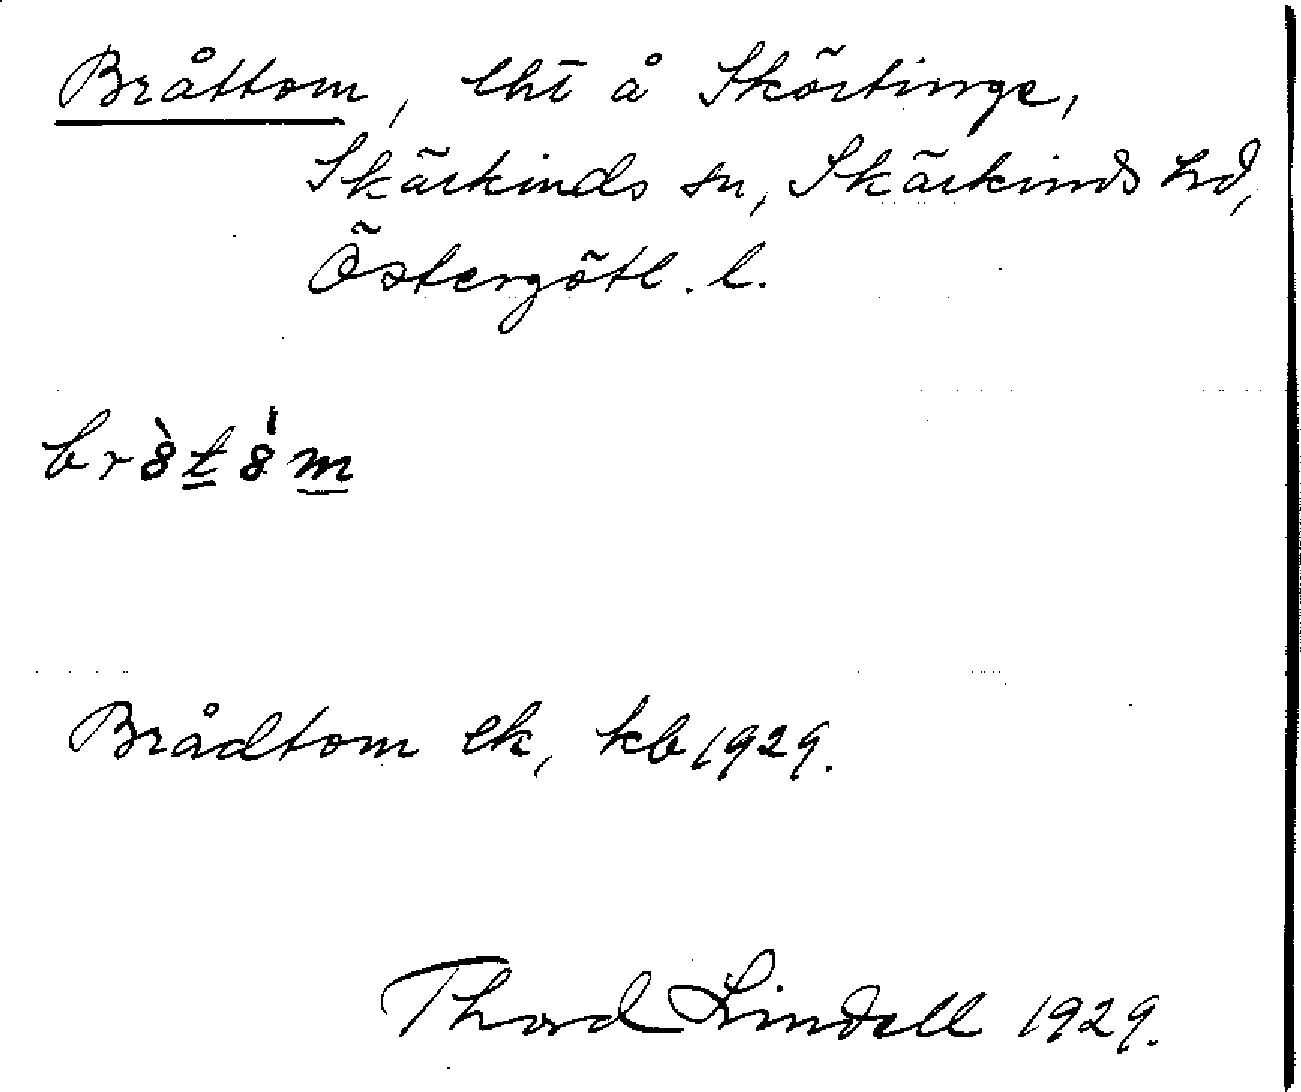 Bråttom, lht å Skörtinge,
Skärkinds sn, Skärkinds hd,
Östergötl. l.
br8̀t8́m
Brådtom lk, kb 1929.
Thord Lindell 1929.